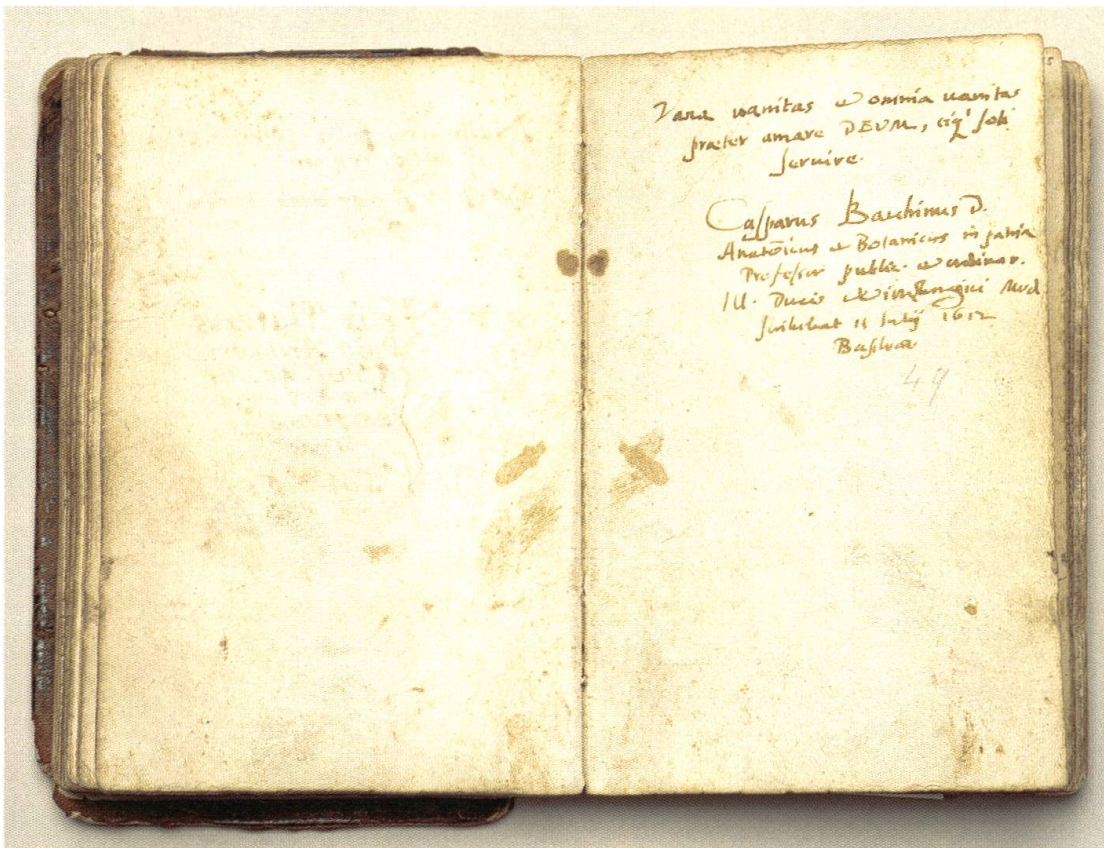 Vana vanitas et omnia vanitas
præter amare DEUM, eiq' soli
servire.
Casparus Bauhinus D.
Anatomicus et Botanicus in patria
Professor public. et ordinar.
Ill. Ducis Wirtenbergici Med
scribebat 11 Julij 1612
Basileae
49